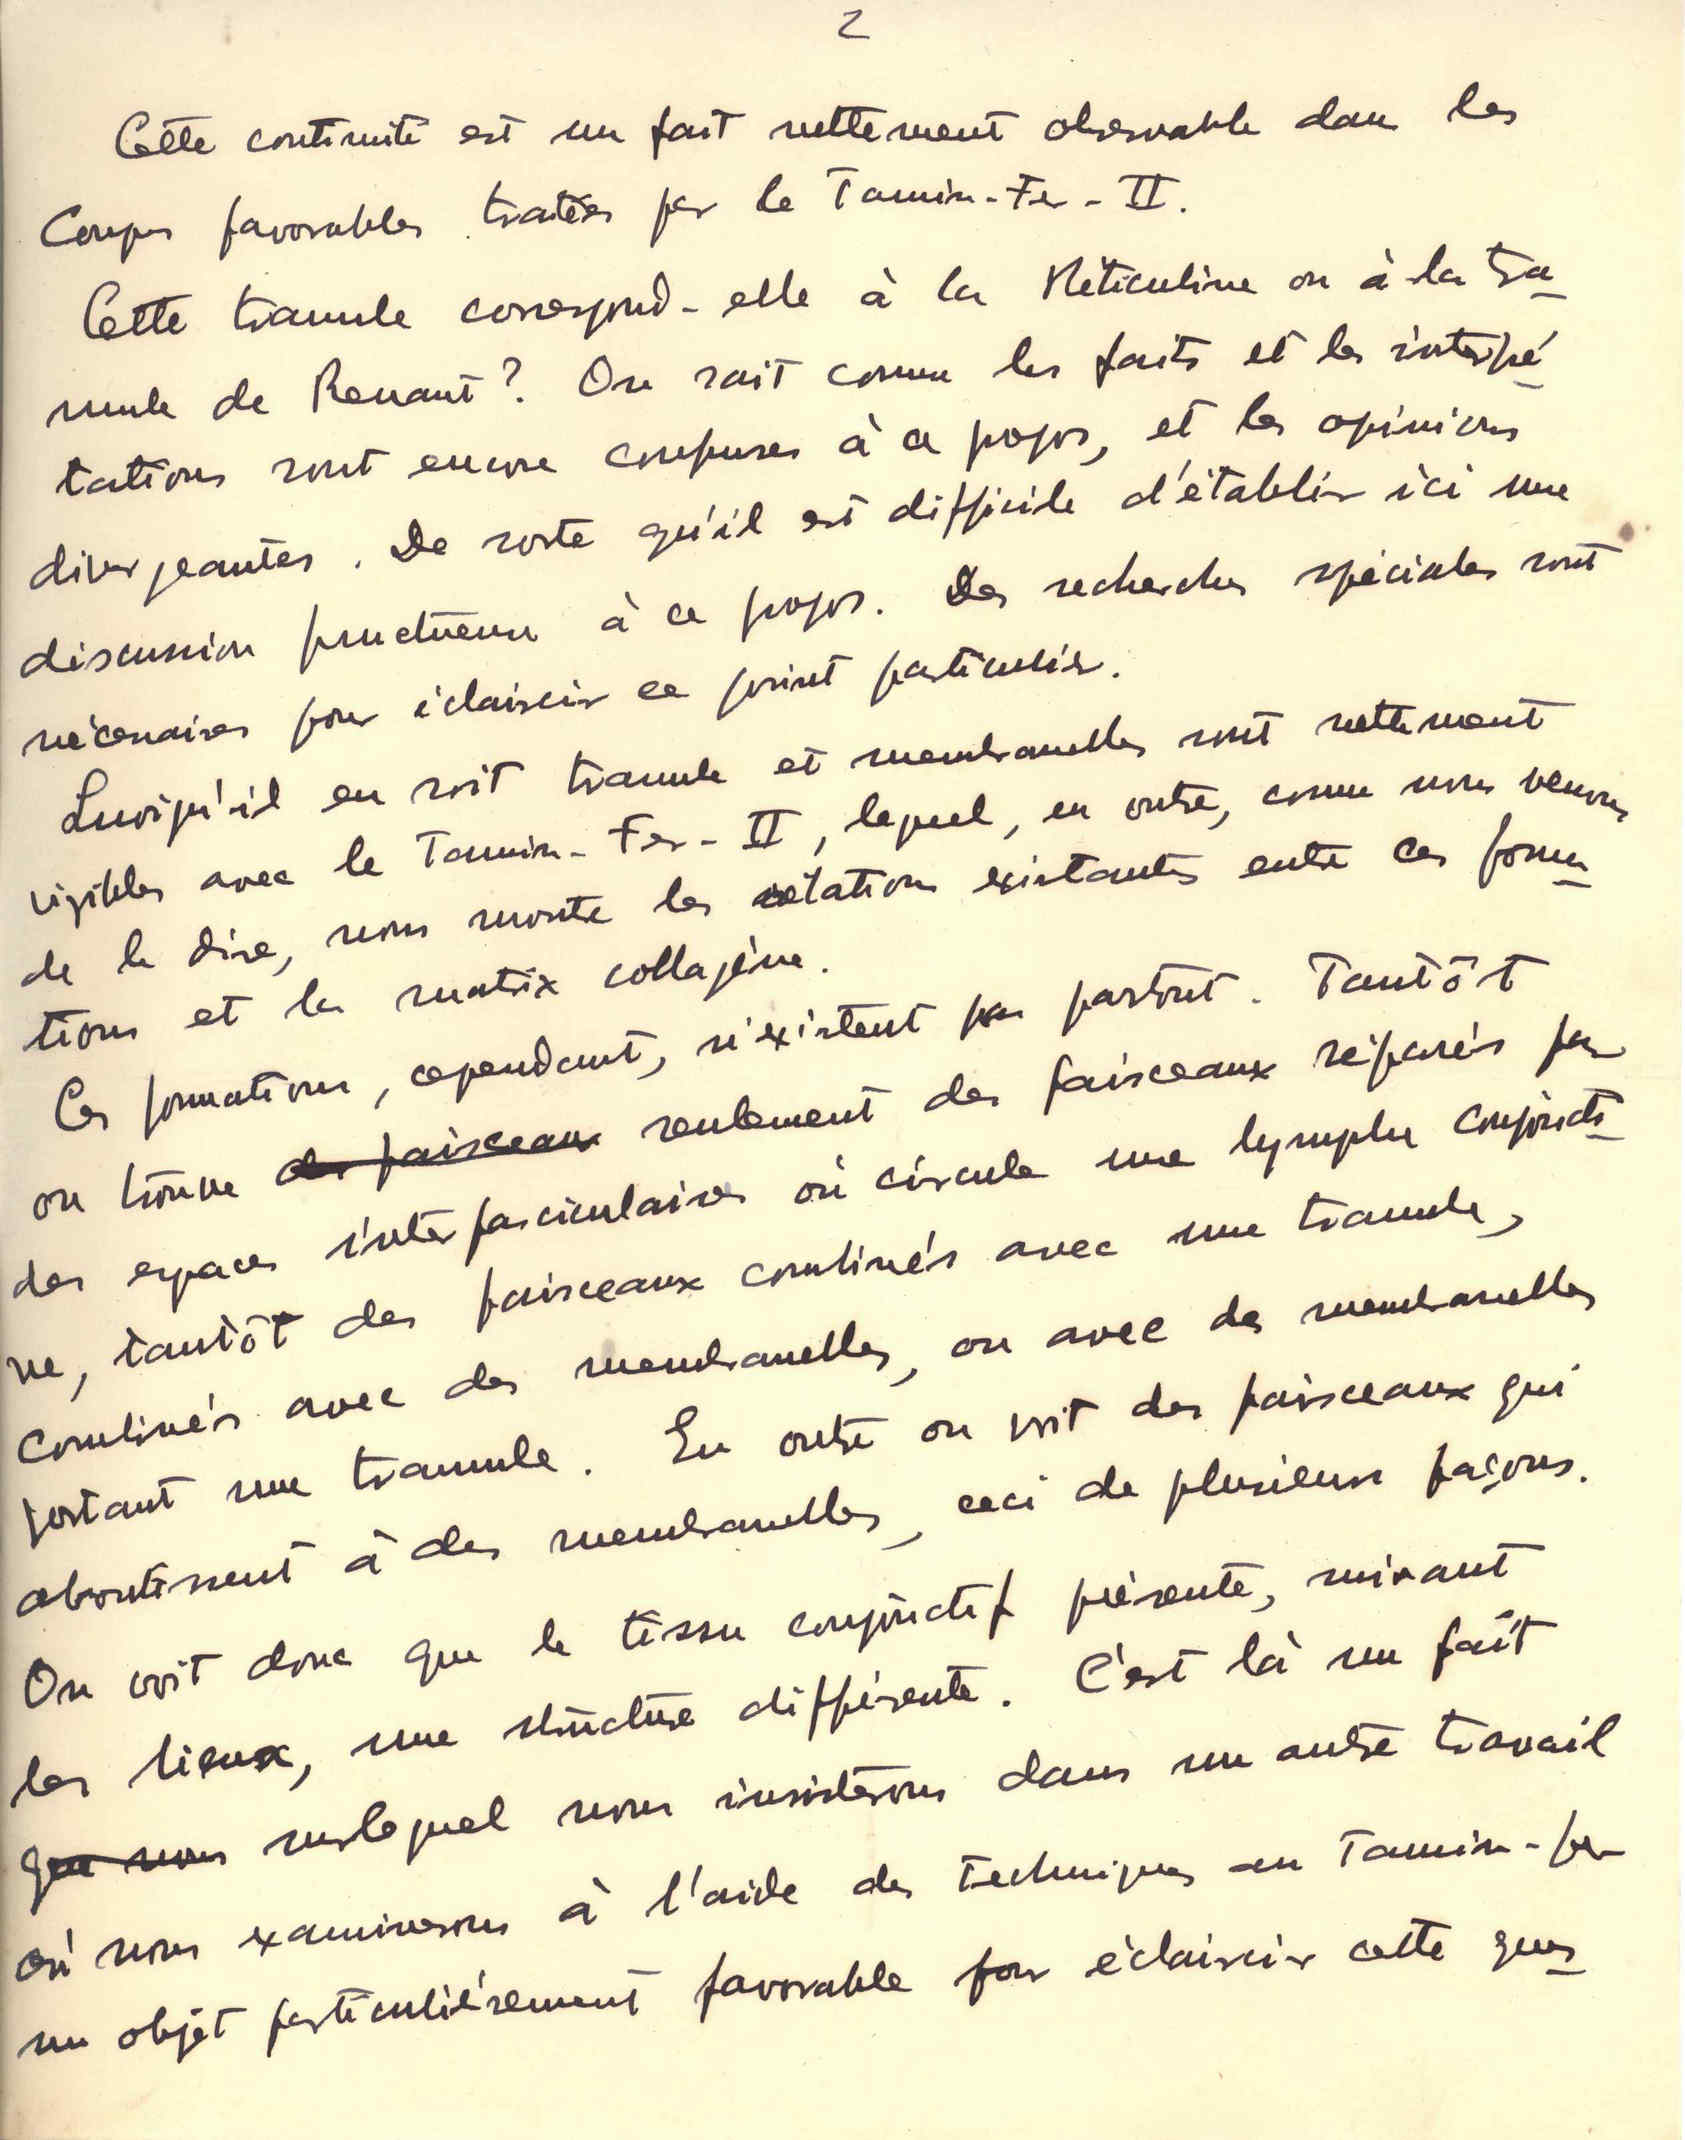 2
Cette continuité est un fait nettement observable dans les
Coupes favorables traitées par le Tannin-Fer-II.
Cette tramule correspond-elle à la Réticuline ou à la tra
mule de Renaut? On sait comme les faits et les interpré
tations sont encore confuses à ce propos, et les opinions
divergeantes. De sorte qu'il est difficile d'établir ici une
discussion fructueuse à ce propos. Des recherches spéciales sont
nécessaires pour éclaircir ce point particulier.
Quoiqu'il en soit tramule et membranelles sont nettement
visibles avec le Tannin-Fer-II, lequel, en outre, comme nous venons
de le dire, nous montre les relations existantes entre ces forma
tions et la matrix collagène.
Ces formations, cependant, n'existent pas partout. Tantôt
on trouve des faisceaux seulement des faisceaux séparés par
des espaces interfasciculaires où circule une lymphe conjoncti
ve, tantôt des faisceaux combinés avec une tramule,
combinés avec des membranelles, ou avec des membranelles
portant une tramule. En outre on voit des faisceaux qui
aboutissent à des membranelles, ceci de plusieurs façons.
On voit donc que le tissu conjonctif présente, suivant
les lieux, une structure différente. C'est là un fait
que nous surlequel nous insisterons dans un autre travail
où nous examinerons à l'aide des techniques au Tannin-fer
un objet particulièrement favorable pour éclaircir cette ques